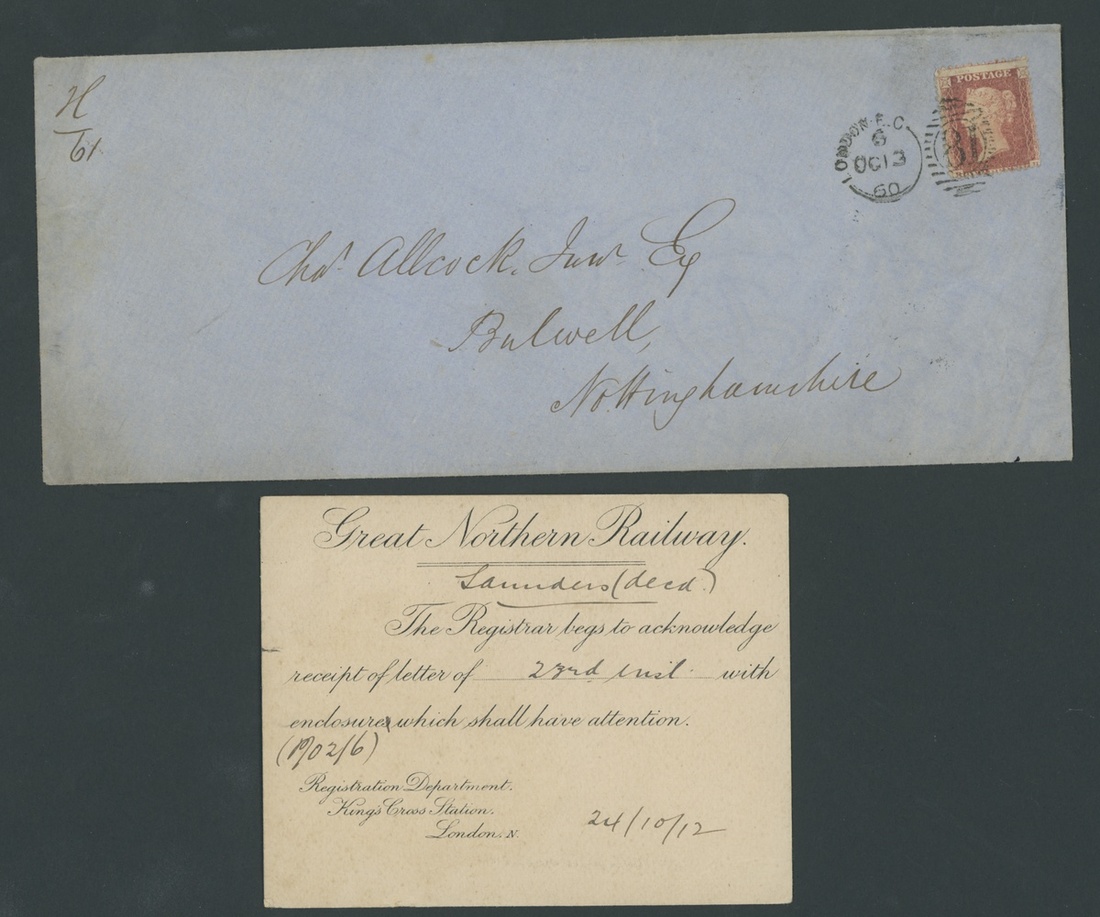 H
/61
POSTAGE
LONDON. E.C
6
OC 13
60
Chas. Allcock. Junr. Esq
Bulwell,
Nottinghamshire
Great Northern Railway.
Saunders (decd.)
The Registrar begs to acknowledge
receipt of letter of 23rd inst. with
enclosure, which shall have attention.
(1902/6)
Registration Department.
King's Cross Station.
London. N.
24/10/12